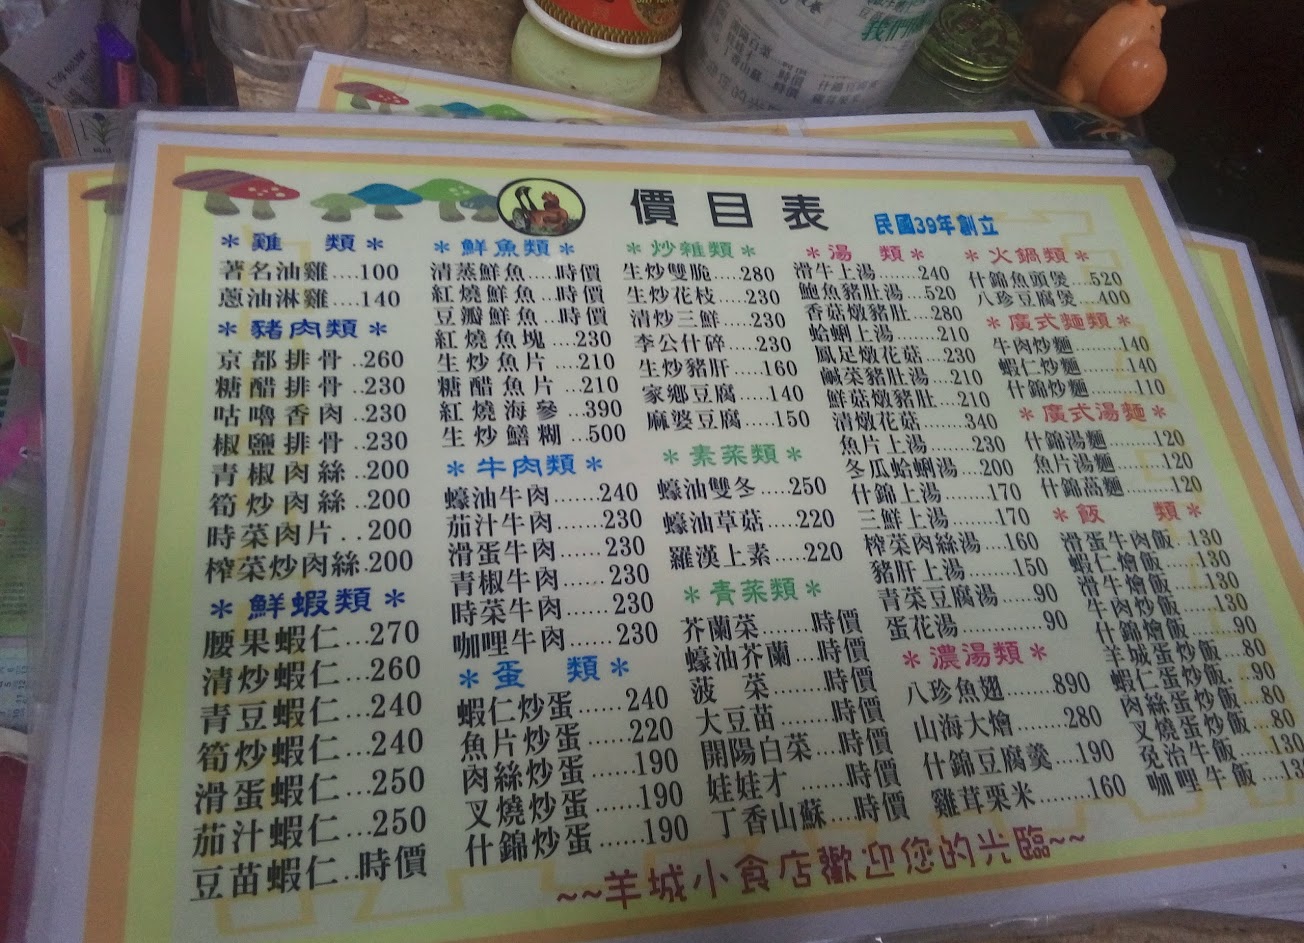 價目表
民國39年創立
＊雞 類＊
著名油雞....100
蔥油淋雞....140
＊豬肉類＊
京都排骨..260
糖醋排骨..230
咕嚕香肉..230
椒鹽排骨..230
青椒肉絲..200
筍炒肉絲..200
時菜肉片..200
榨菜炒肉絲.200
＊鮮蝦類＊
腰果蝦仁...270
清炒蝦仁...260
青豆蝦仁...240
筍炒蝦仁...240
滑蛋蝦仁...250
茄汁蝦仁...250
豆苗蝦仁..時價
＊鮮魚類＊
清蒸鮮魚....時價
紅燒鮮魚...時價
豆瓣鮮魚...時價
紅燒魚塊....230
生炒魚片....210
糖醋魚片...210
紅燒海參...390
生炒鱔糊...500
＊牛肉類＊
蠔油牛肉.......240
茄汁牛肉.......230
滑蛋牛肉......230
青椒牛肉......230
時菜牛肉......230
咖哩牛肉......230
＊蛋 類＊
蝦仁炒蛋......240
魚片炒蛋......220
肉絲炒蛋......190
叉燒炒蛋......190
什錦炒蛋......190
＊炒雜類＊
生炒雙脆....280
生炒花枝.....230
清炒三鮮.....230
李公什碎.....230
生炒豬肝....160
家鄉豆腐.....140
麻婆豆腐.....150
＊素菜類＊
蠔油雙冬.....250
蠔油草菇.....220
羅漢上素.....220
＊青菜類＊
芥蘭菜........時價
蠔油芥蘭....時價
菠 菜........時價
大豆苗........時價
開陽白菜...時價
娃娃才.......時價
丁香山蘇....時價
＊湯 類＊
滑牛上湯.......240
鮑魚豬肚湯...520
香菇燉豬肚...280
蛤蜊上湯.......210
鳳足燉花菇...230
鹹菜豬肚湯...210
鮮菇燉豬肚...210
清燉花菇.......340
魚片上湯.......230
冬瓜蛤蜊湯...200
什錦上湯.......170
三鮮上湯........170
榨菜肉絲湯....160
豬肝上湯.......150
青菜豆腐湯.....90
蛋花湯............90
＊濃湯類＊
八珍魚翅.......890
山海大燴.......280
什錦豆腐羹...190
雞茸栗米........160
＊火鍋類＊
什錦魚頭煲...520
八珍豆腐煲...400
＊廣式麵類＊
牛肉炒麵.......140
蝦仁炒麵.......140
什錦炒麵.......110
＊廣式湯麵＊
什錦湯麵.......120
魚片湯麵.......120
什錦萵麵.......120
＊飯 類＊
滑蛋牛肉飯..130
蝦仁燴飯......130
滑牛燴飯......130
牛肉炒飯......130
什錦燴飯.......90
羊城蛋炒飯...80
蝦仁蛋炒飯...90
肉絲蛋炒飯...80
叉燒蛋炒飯...80
免治牛飯.....130
咖哩牛飯.....
~~羊城小食店歡迎您的光臨~~